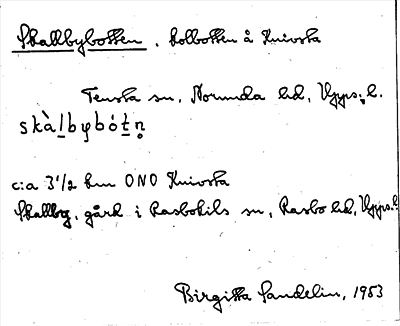 Skallbybotten, torbotten å Knivsta
Tensta sn, Norunda hd, Upps. l.
skàl̠bybót̠n̥
c:a 3 1/2 km ONO Knivsta
Skallby, gård i Rasbokils sn, Rasbo hd, Upps. l.
Birgitta Sandelin, 1953